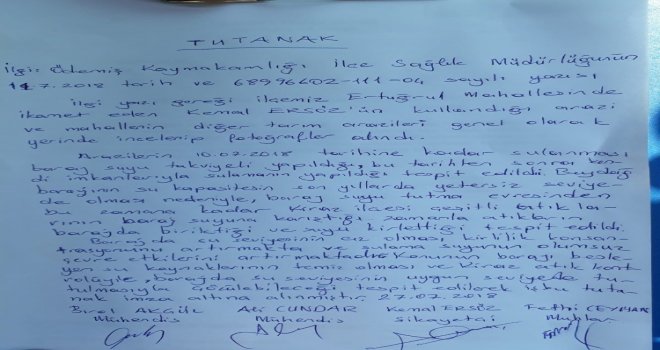 TUTANAK
İlgi: Ödemiş Kaymakamlığı İlçe Sağlık Müdürlüğünün
11.7.2018 tarih ve 68996402-111-04 sayılı yazısı
İlgi yazı gereği ilçemiz Ertuğrul Mahallesinde
ikamet eden Kemal ERSÖZ'ün kullandığı arazi
ve mahallenin diğer tarım arazileri genel olarak
yerinde incelenip fotoğraflar alındı.
Arazilerin 10.07.2018 tarihine kadar sulanması
baraj suyu takviyeli yapıldığı, bu tarihten sonra ken-
di imkanlarıyla sulamanın yapıldığı tespit edildi. Buydağ
barajının su kapasitesin son yıllarda yetersiz seviye-
de olması nedeniyle, baraj suyu tutma evresinden
bu zamana kadar Kiraz ilçesi çeşitli atıkla-
rının baraj suyuna karıştığı zamanla atıkların
barajda biriktiği ve suyu kirlettiği tespit edildi.
Barajda su seviyesinin az olması kirlilik konsan-
trasyonunu artırmakta ve sulama suyunun olumsuz
çevre etkilerini artırmaktadır. Konunun barajı besle-
yen su kaynaklarının temiz olması ve Kiraz atık kont
rolüyle, barajda su seviyesinin uygun seviyede tu-
tulmasıyla çözülebileceği tespit edilerek işbu tuta-
nak imza altına alınmıştır. 27.07.2018
Birol AKGÜL Ali CUNDAR Kemal ERSÖZ Fethi CEYHAN
Mühendis Mühendis Şikayetçi Muhtar